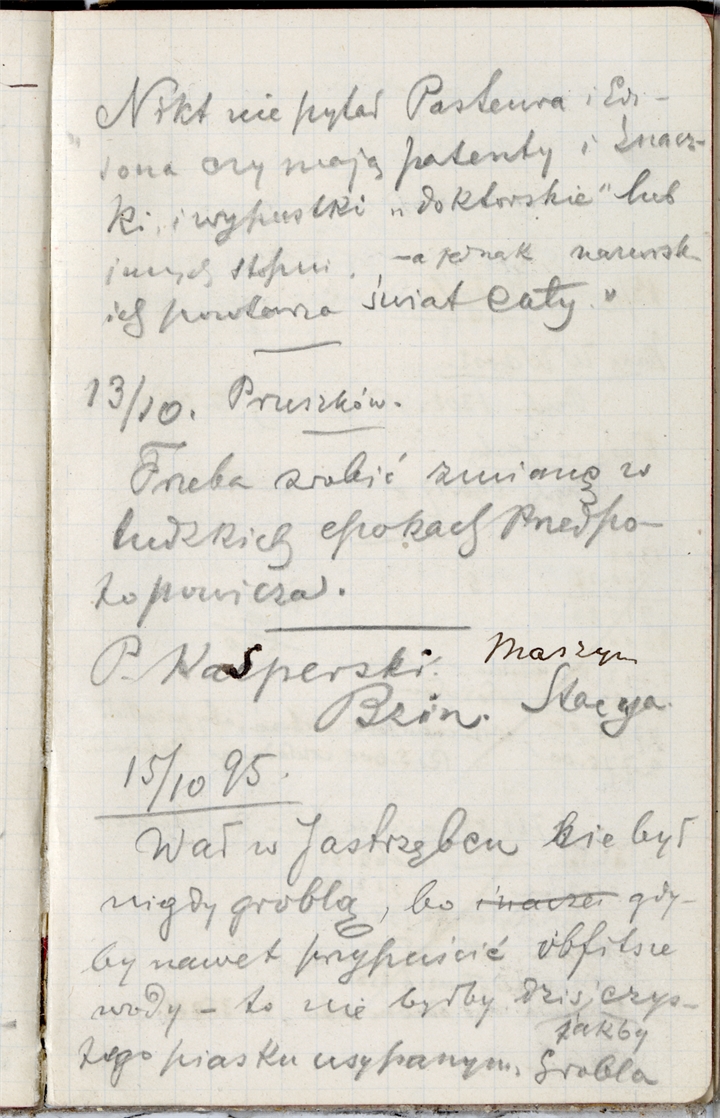 Nikt nie pytał Pasteura i Edi-
"sona czy mają patenty i znacz-
ki, i wypustki „doktorskie" lub
innych stopni, – a jednak nazwisk
ich powtarza świat cały."
13/10. Pruszków.
Trzeba zrobić zmianę w
ludzkich epokach Przedpo-
topowicza.
P. Kasperski. Maszyn
Bzin. Stacya.
15/10 95.
Wał w Jastrzębcu nie był
nigdy groblą, bo inaczej gdy-
by nawet przypuścić obfitsze
wody – to nie byłby dziś czys-
tego piasku usypanym, jakby
Grobla